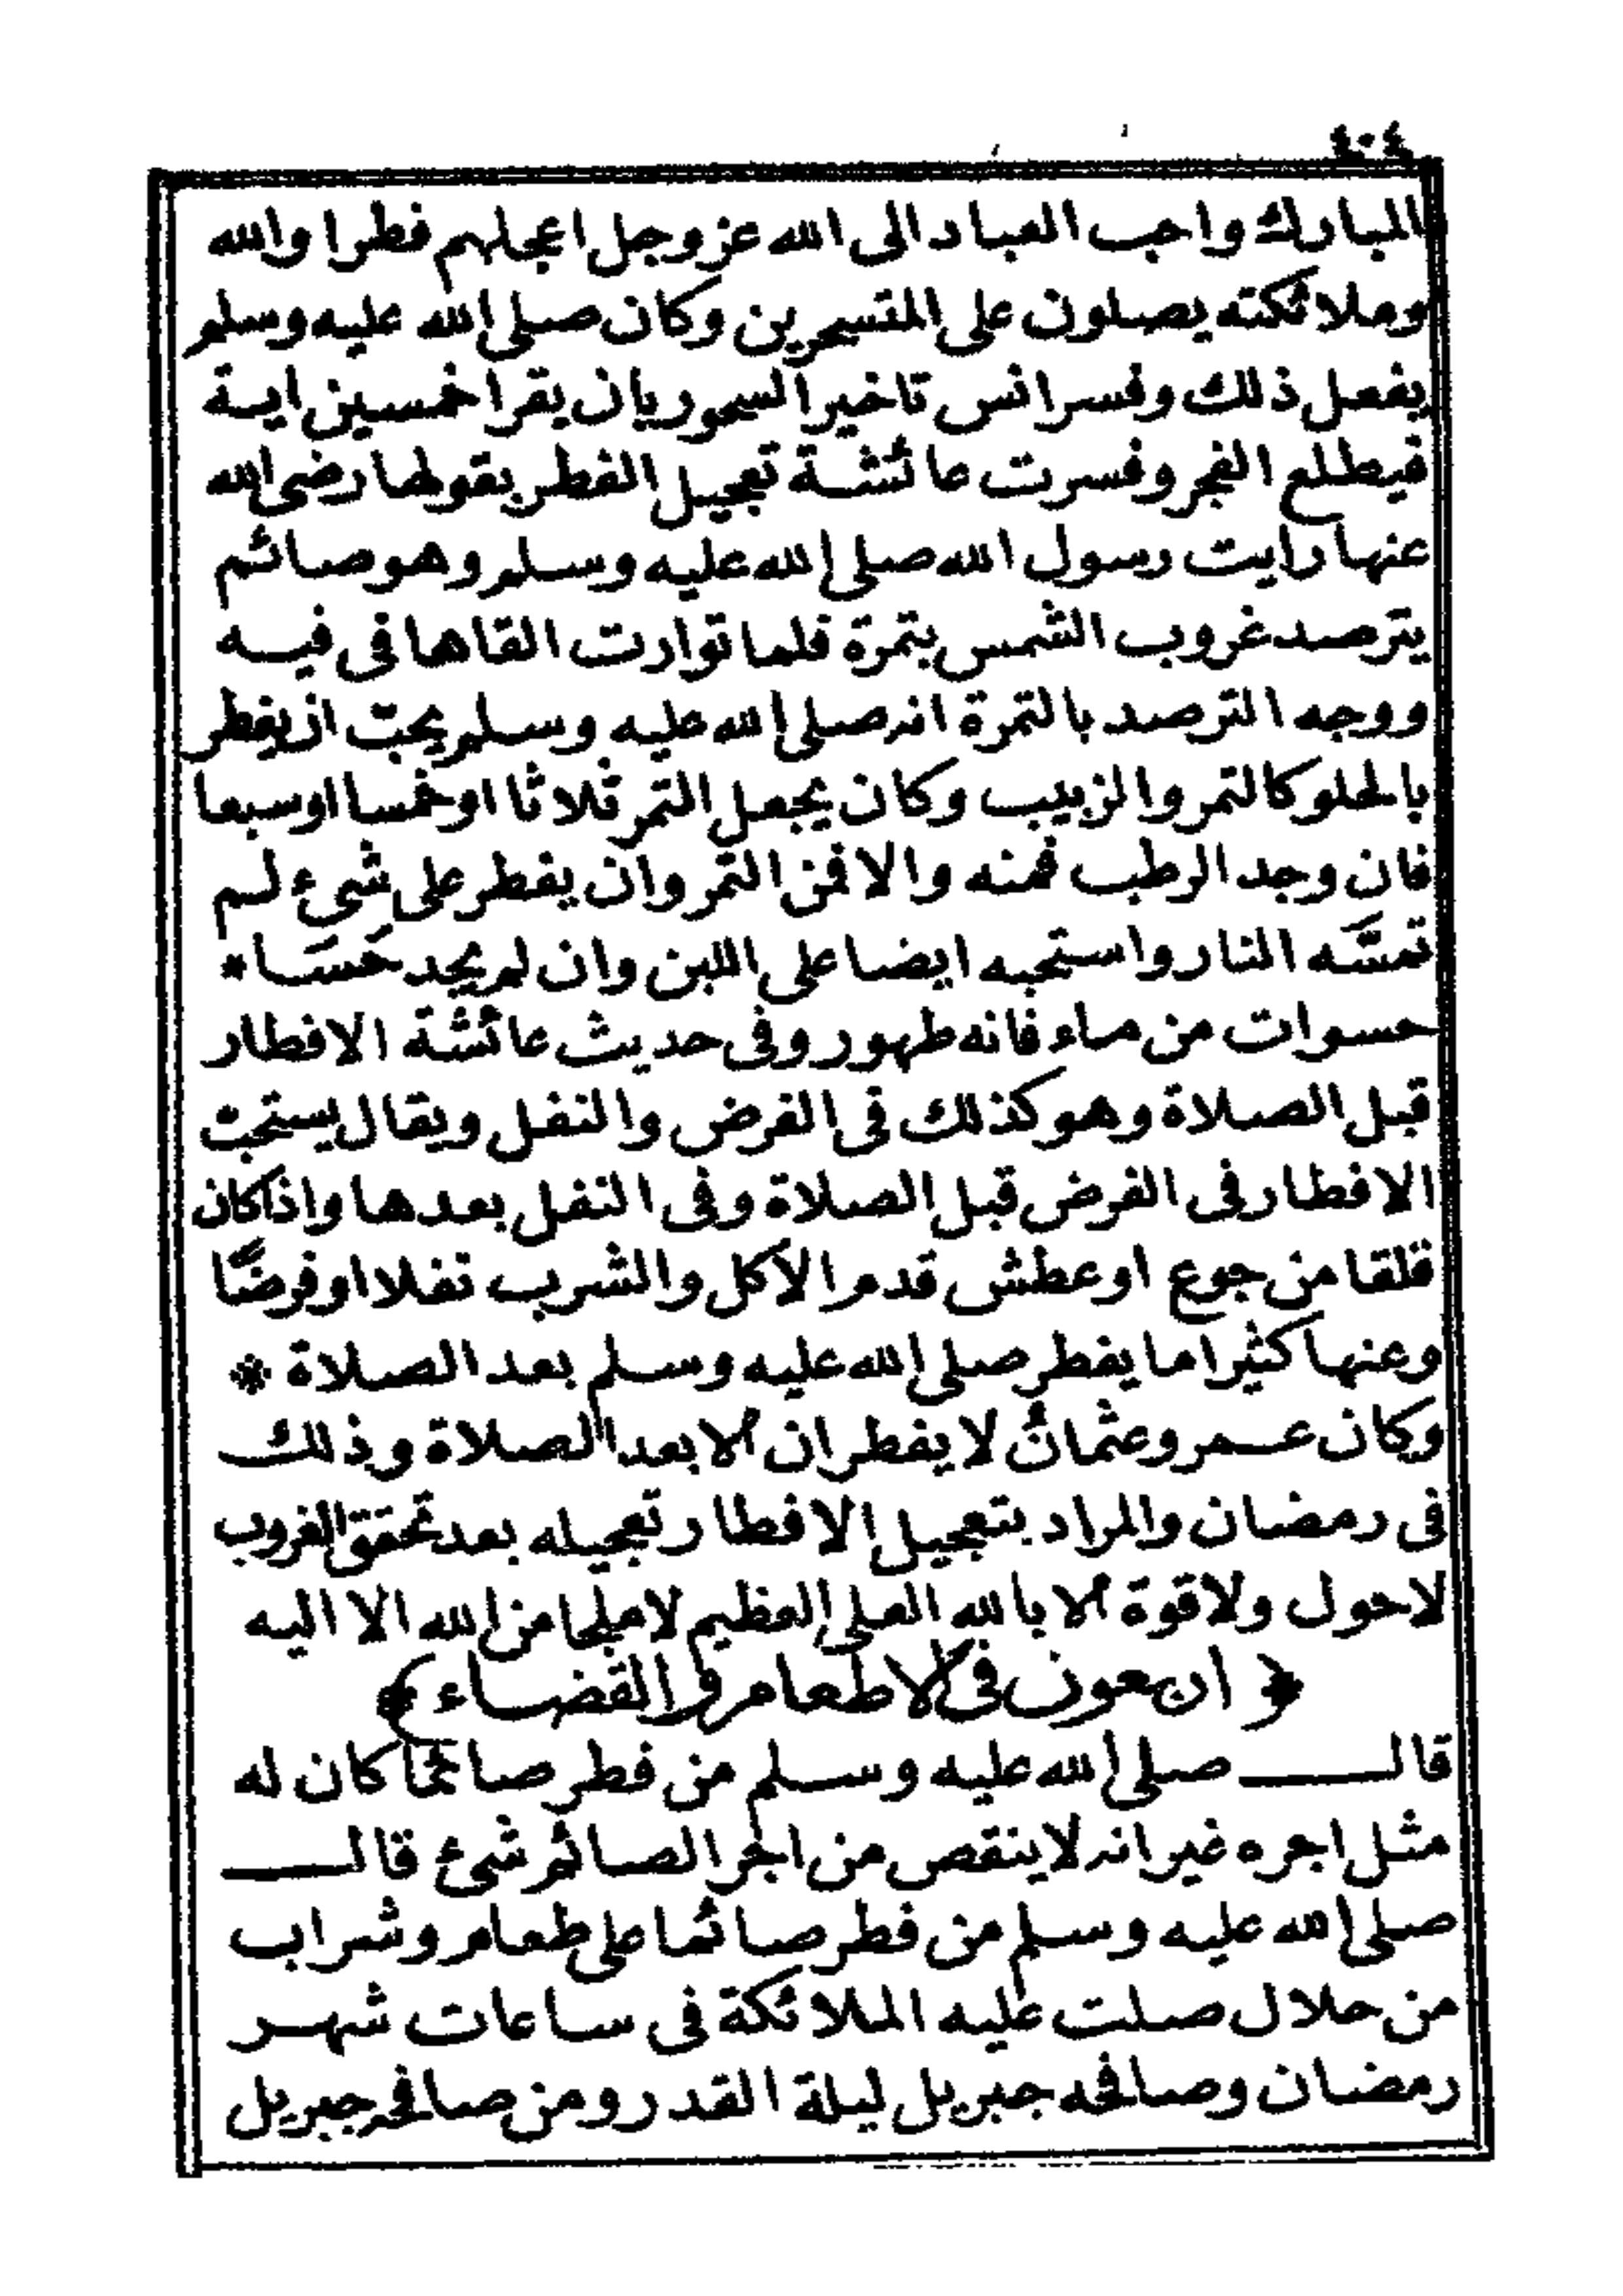 ٤٠٤
المبارك واحب العباد الى الله عز وجل اعجلهم فطرا والله
وملائكته يصلون على المتسحرين وكان صلى الله عليه وسلم
يفعل ذلك وفسر انس تاخير السحور بان يقرا خمسين اية
فيطلع الفجر وفسرت عائشة تعجيل الفطر بقولها رضى الله
عنها رايت رسول الله صلى الله عليه وسلم وهو صائم
يترصد غروب الشمس بتمرة فلما توارت القاها فى فيه
ووجه الترصد بالتمرة انه صلى الله عليه وسلم يحبّ ان يفطر
بالحلو كالتمر والزبيب وكان يجعل التمر ثلاثا او خمسا او سبعا
فان وجد الرطب فمنه والا فمن التمر وان يفطر على شىء لم
تمسَّه النار واستحبه ايضا على اللبن وان لم يجد حَسَا *
حسوات من ماء فانه طهور وفى حديث عائشة الافطار
قبل الصلاة وهو كذلك فى الفرض والنفل ويقال يستحبّ
الافطار فى الفرض قبل الصلاة وفى النفل بعدها واذا كان
قلقا من جوع او عطش قدم الاكل والشرب نفلا او فرضًا
وعنها كثيرا ما يفطر صلى الله عليه وسلم بعد الصلاة *
وكان عمر وعثمان لا يفطران الا بعد الصلاة وذلك
فى رمضان والمراد بتعجيل الافطار تعجيله بعد تحقق الغروب
لا حول ولا قوة الا بالله العلى العظيم لا ملجا من الله الا اليه
﴿ اربعون فى الاطعام والقضاء ﴾
قال صلى الله عليه وسلم من فطر صائما كان له
مثل اجره غير انه لا ينقص من اجر الصائم شئ قال
صلى الله عليه وسلم من فطر صائما على طعام وشراب
من حلال صلت عليه الملائكة فى ساعات شهر
رمضان وصافحه جبريل ليلة القدر ومن صافحه جبريل